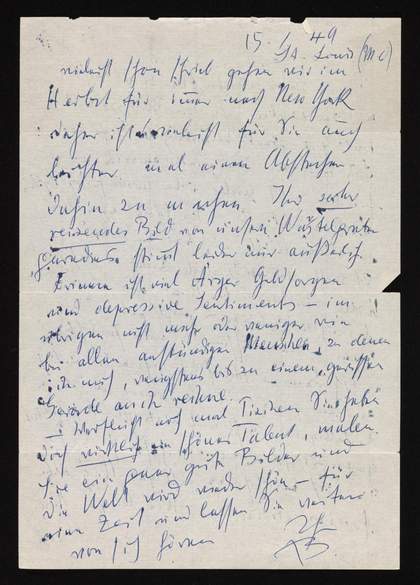 15. 1. 49
St. Louis (Mo)
vielleicht schon schrieb gehen wir im
Herbst für immer nach New York
daher ist es vielleicht für Sie auch
leichter mal einen Abstecher
dahin zu machen. Ihr sehr
reizendes Bild von unserem
stimmt leider nur äußerlich.
Innen ist viel Ärger Geldsorgen
und depressive Sentiments – im
übrigen nicht mehr oder weniger wie
bei allen anständigen Menschen, zu denen
ich mich, wenigstens bis zu einem gewissen
Grade auch rechne.
– Vielleicht noch mal Sie haben
doch wirklich ein schönes Talent, malen
Sie ein paar gute Bilder und
die Welt wird wieder schön – für
eine Zeit und lassen Sie weiter
von sich hören